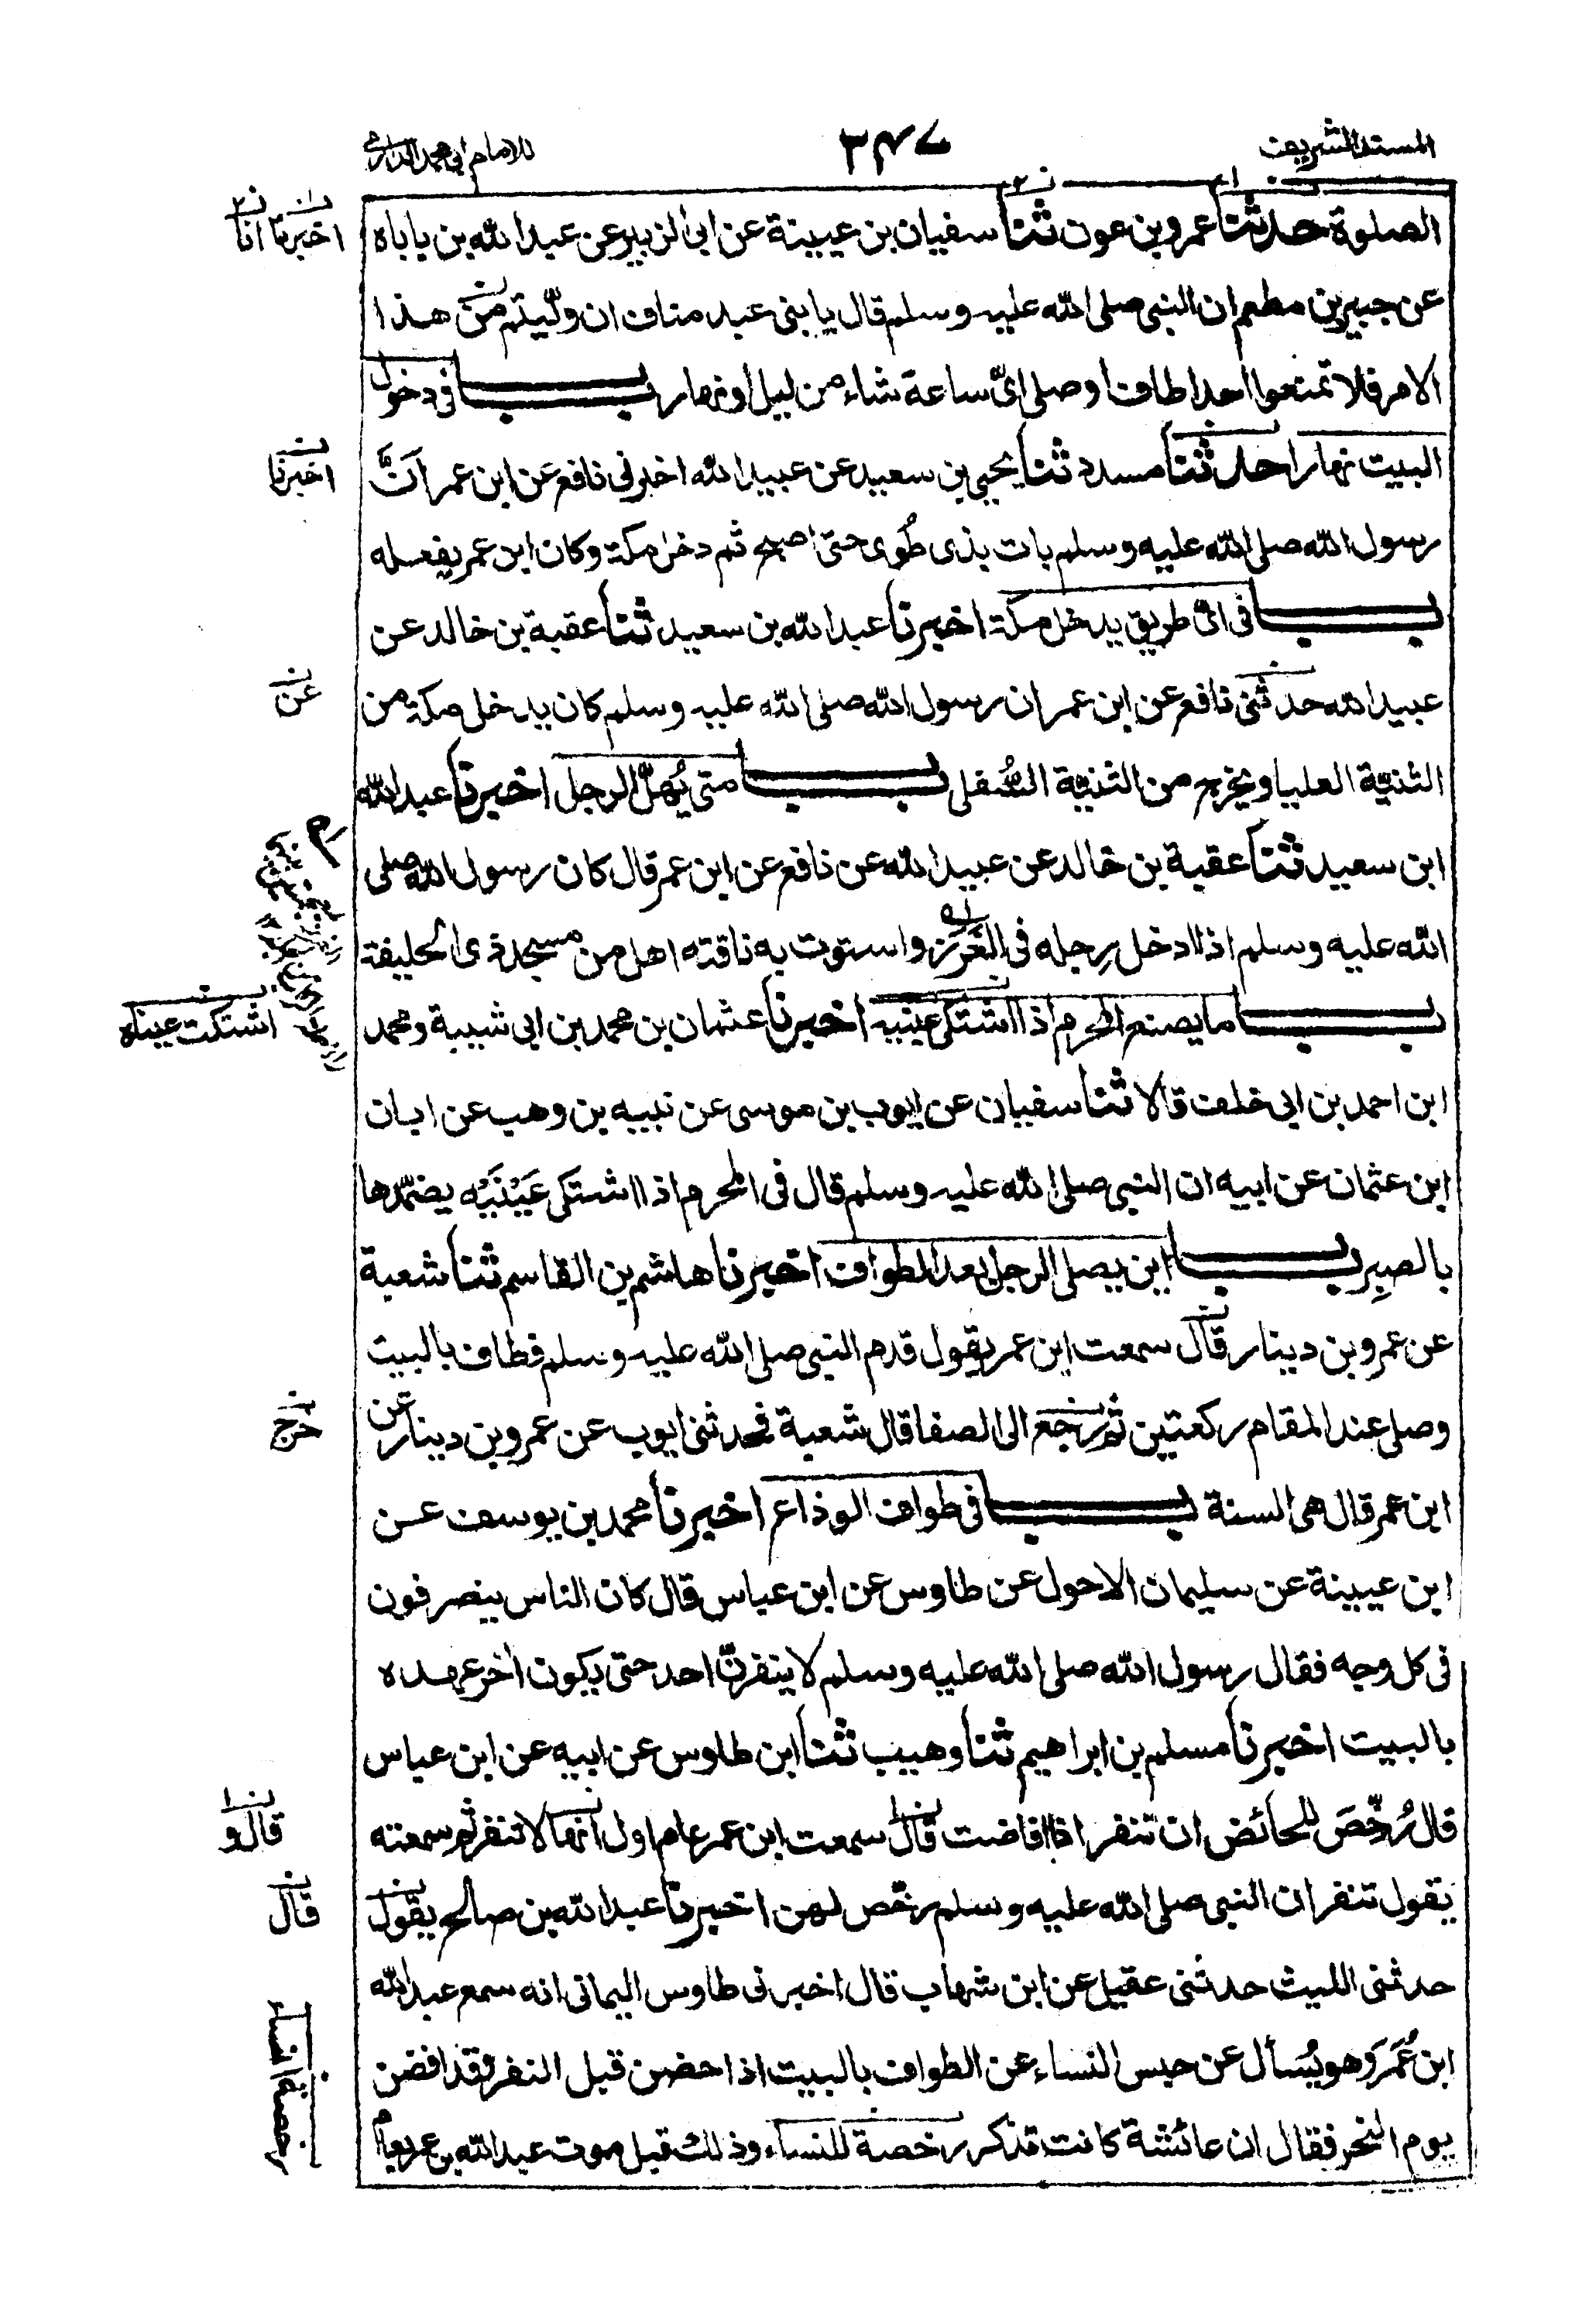 المسند الشريف
٢٤٧
للامام ابى محمد الدارمى
الصلوة حدثنا عمرو بن عون ثنا سفيان بن عيينة عن ابى الزبير عن عبد الله بن باباه
اخبرنا انا
عن جبير بن مطعم ان النبى صلى الله عليه وسلم قال يا بنى عبد مناف ان وليتم من هذا
الامر فلا تمنعوا احدا طاف او صلى اىّ ساعة شاء من ليل او نهار باب فى دخول
البيت نهارا حدثنا مسدد ثنا يحيى بن سعيد عن عبيد الله اخبرنى نافع عن ابن عمر انَّ
اخبرنا
رسول الله صلى الله عليه وسلم بات بذى طُوى حتى اصبح ثم دخل مكة وكان ابن عمر يفعله
باب فى اىّ طريق يدخل مكة اخبرنا عبد الله بن سعيد ثنا عقبة بن خالد عن
عبيد الله حدثنى نافع عن ابن عمر ان رسول الله صلى الله عليه وسلم كان يدخل مكة من
عن
الثنيّة العليا ويخرج من الثنيّة السُّفلى باب متى يُهلّ الرجل اخبرنا عبد الله
ابن سعيد ثنا عقبة بن خالد عن عبيد الله عن نافع عن ابن عمر قال كان رسول الله صلى
الله عليه وسلم اذا ادخل رِجله فى الغَرز واستوت به ناقته اهل من مسجد ذى الحليفة
باب ما يصنع المحرم اذا اشتكى عينيه اخبرنا عثمان بن محمد بن ابى شيبة ومحمد
اشتكت عيناه
ابن احمد بن ابى خلف قالا ثنا سفيان عن ايوب بن موسى عن نبيه بن وهب عن ابان
ابن عثمان عن ابيه ان النبى صلى الله عليه وسلم قال فى المحرم اذا اشتكى عَيْنَيْه يضمّدها
بالصبِر باب اين يصلى الرجل بعد الطواف اخبرنا هاشم بن القاسم ثنا شعبة
عن عمرو بن دينار قال سمعت ابن عمر يقول قدم النبى صلى الله عليه وسلم فطاف بالبيت
وصلى عند المقام ركعتين ثم رجع الى الصفا قال شعبة فحدثنى ايوب عن عمرو بن دينار عن
خرج
ابن عمر قال هى السنة باب فى طواف الوداع اخبرنا محمد بن يوسف عن
ابن عيينة عن سليمان الاحول عن طاوس عن ابن عباس قال كان الناس ينصرفون
فى كل وجه فقال رسول الله صلى الله عليه وسلم لا ينفرنّ احد حتى يكون اخر عهده
بالبيت اخبرنا مسلم بن ابراهيم ثنا وهيب ثنا ابن طاوس عن ابيه عن ابن عباس
قال رُخِّصَ للحائض ان تنفر اذا افاضت قال سمعت ابن عمر عام اول انها لا تنفر ثم سمعته
قال و
يقول تنفر ان النبى صلى الله عليه وسلم رخّص لهن اخبرنا عبد الله بن صالح يقول
قال
حدثنى الليث حدثنى عقيل عن ابن شهاب قال اخبرنى طاوس اليمانى انه سمع عبد الله
ابن عُمَرَ وهو يُسَأل عن حبس النساء عن الطواف بالبيت اذا حضن قبل النفر وقد افضن
يوم النحر فقال ان عائشة كانت تذكر رخصة للنساء وذلك قبل موت عبد الله بن عمر بعام
رخصة النساء